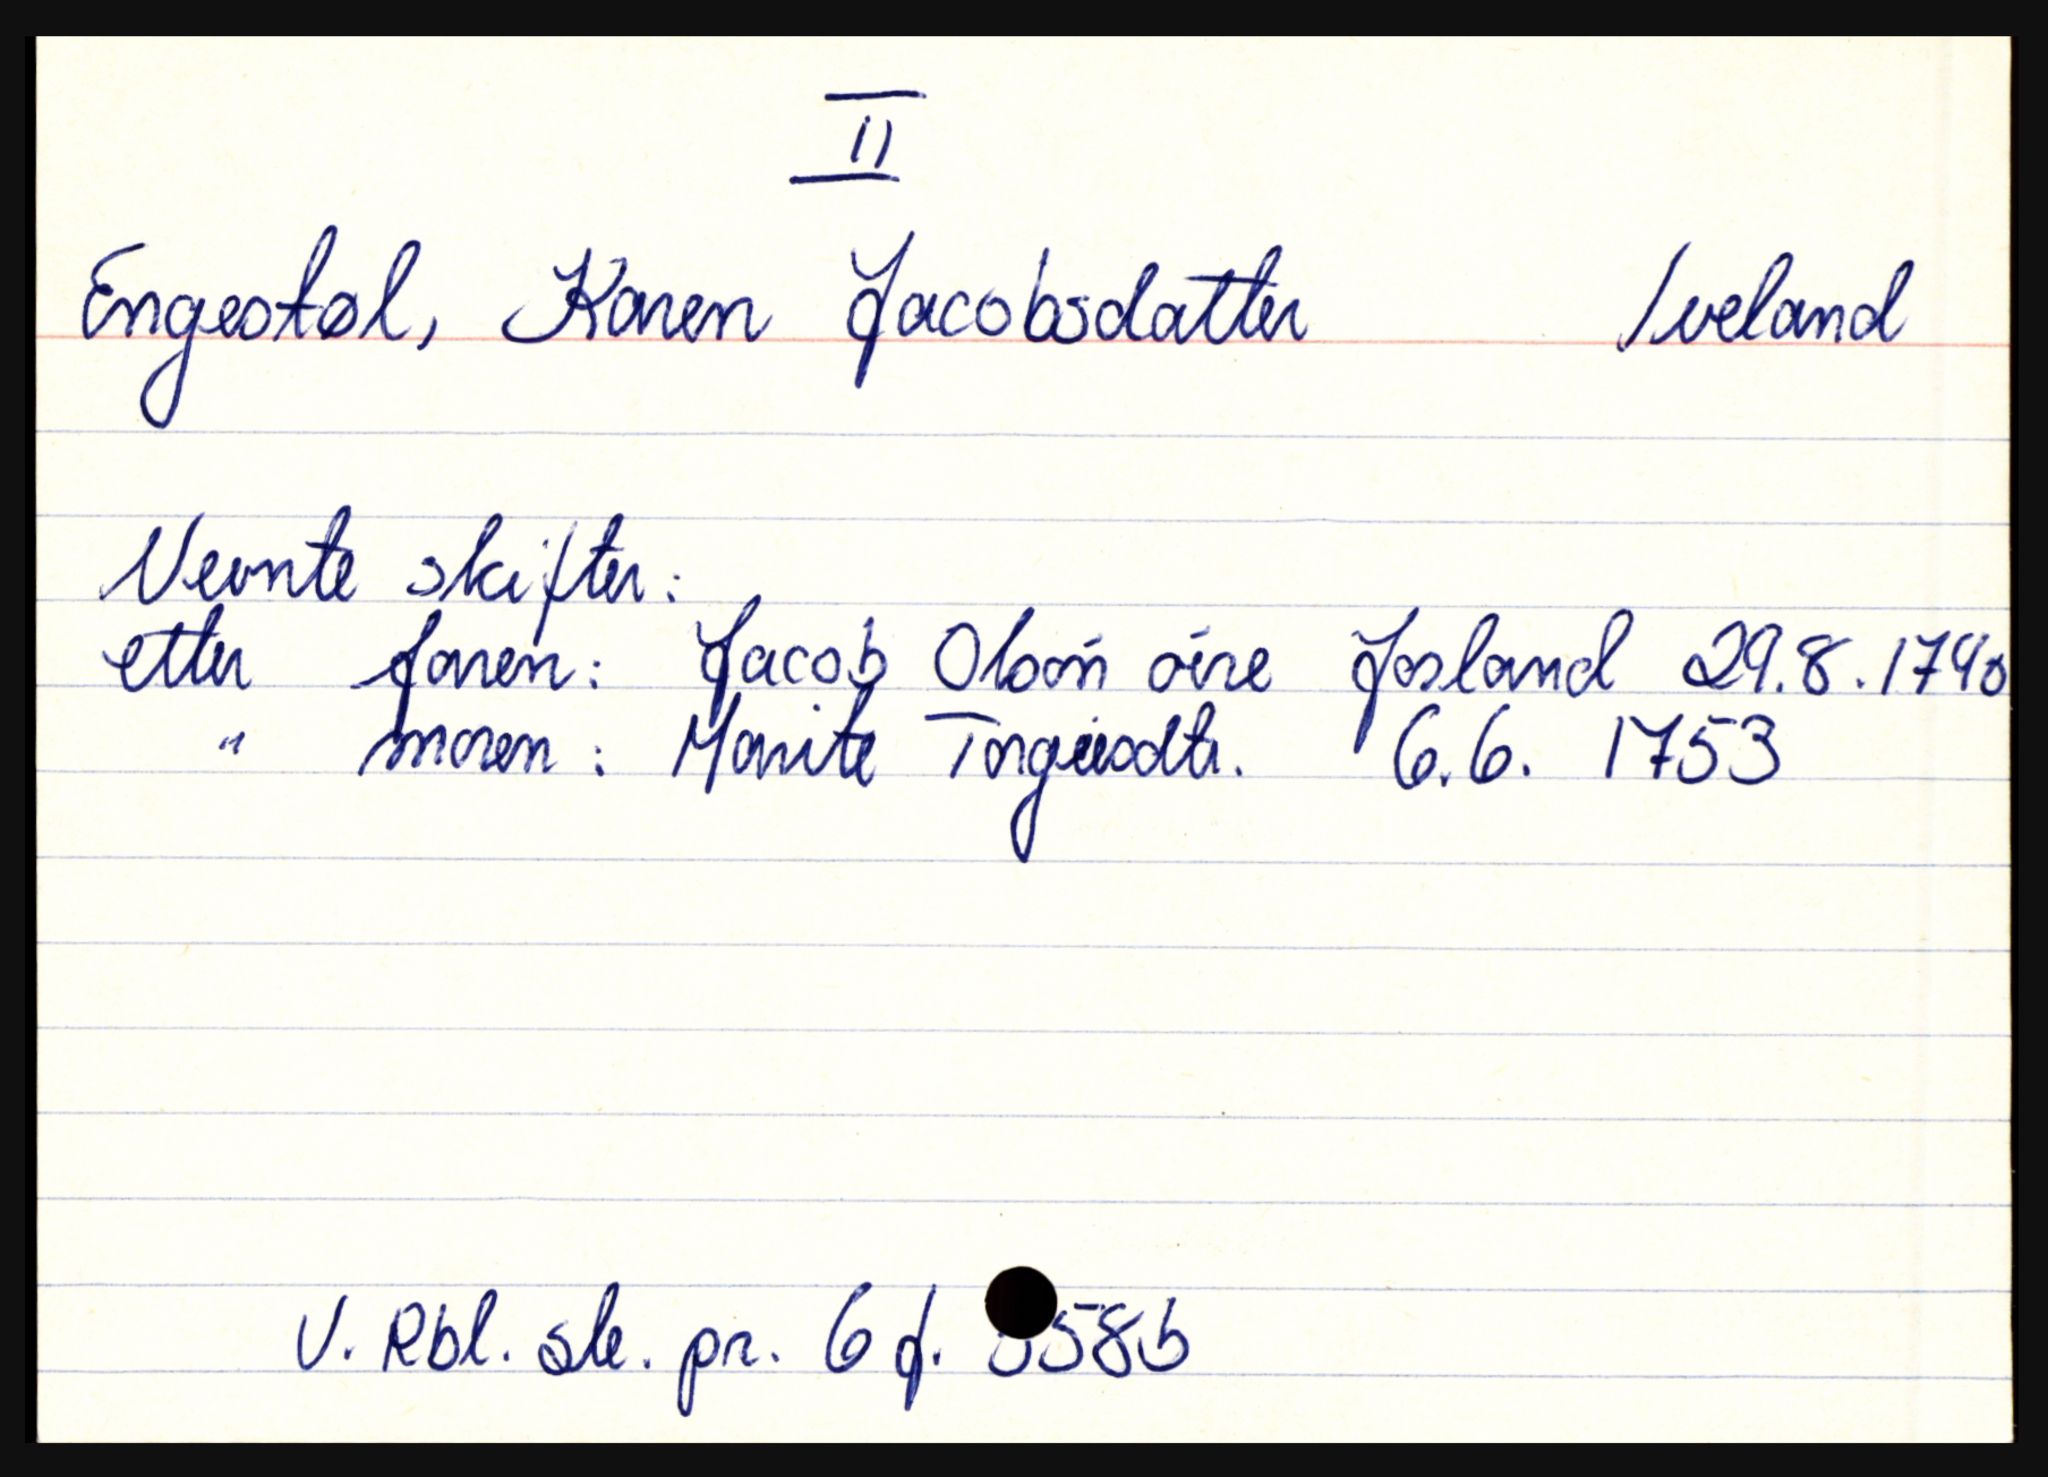 II
Engestøl, Karen Jacobsdatter Iveland
Nevnte skifter:
etter faren: Jacob Olsøn øire Josland 29.8.1740
" moren: Marite Torgeirsdtr. 6.6. 1753
V. Rbl. sk. pr. 6 f. 58b